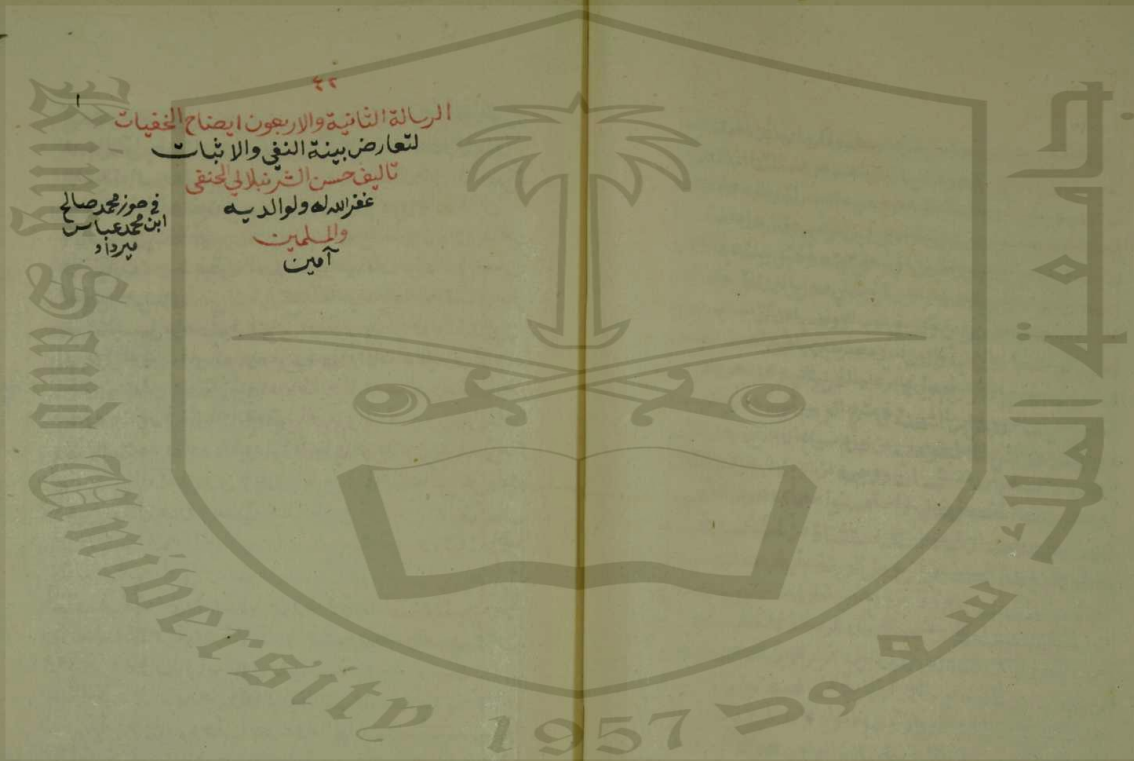 ٤٢
الرسالة الثانية والاربعون ايضاح الخفيات
لتعارض بينة النفي والاثبات
تاليف حسن الشرنبلالي الحنفي
غفر الله له ولوالديه
والمسلمين
آمين
في حوز محمد صالح
ابن محمد عباس
ميرداد
١
جامعة الملك سعود
King Saud University 1957